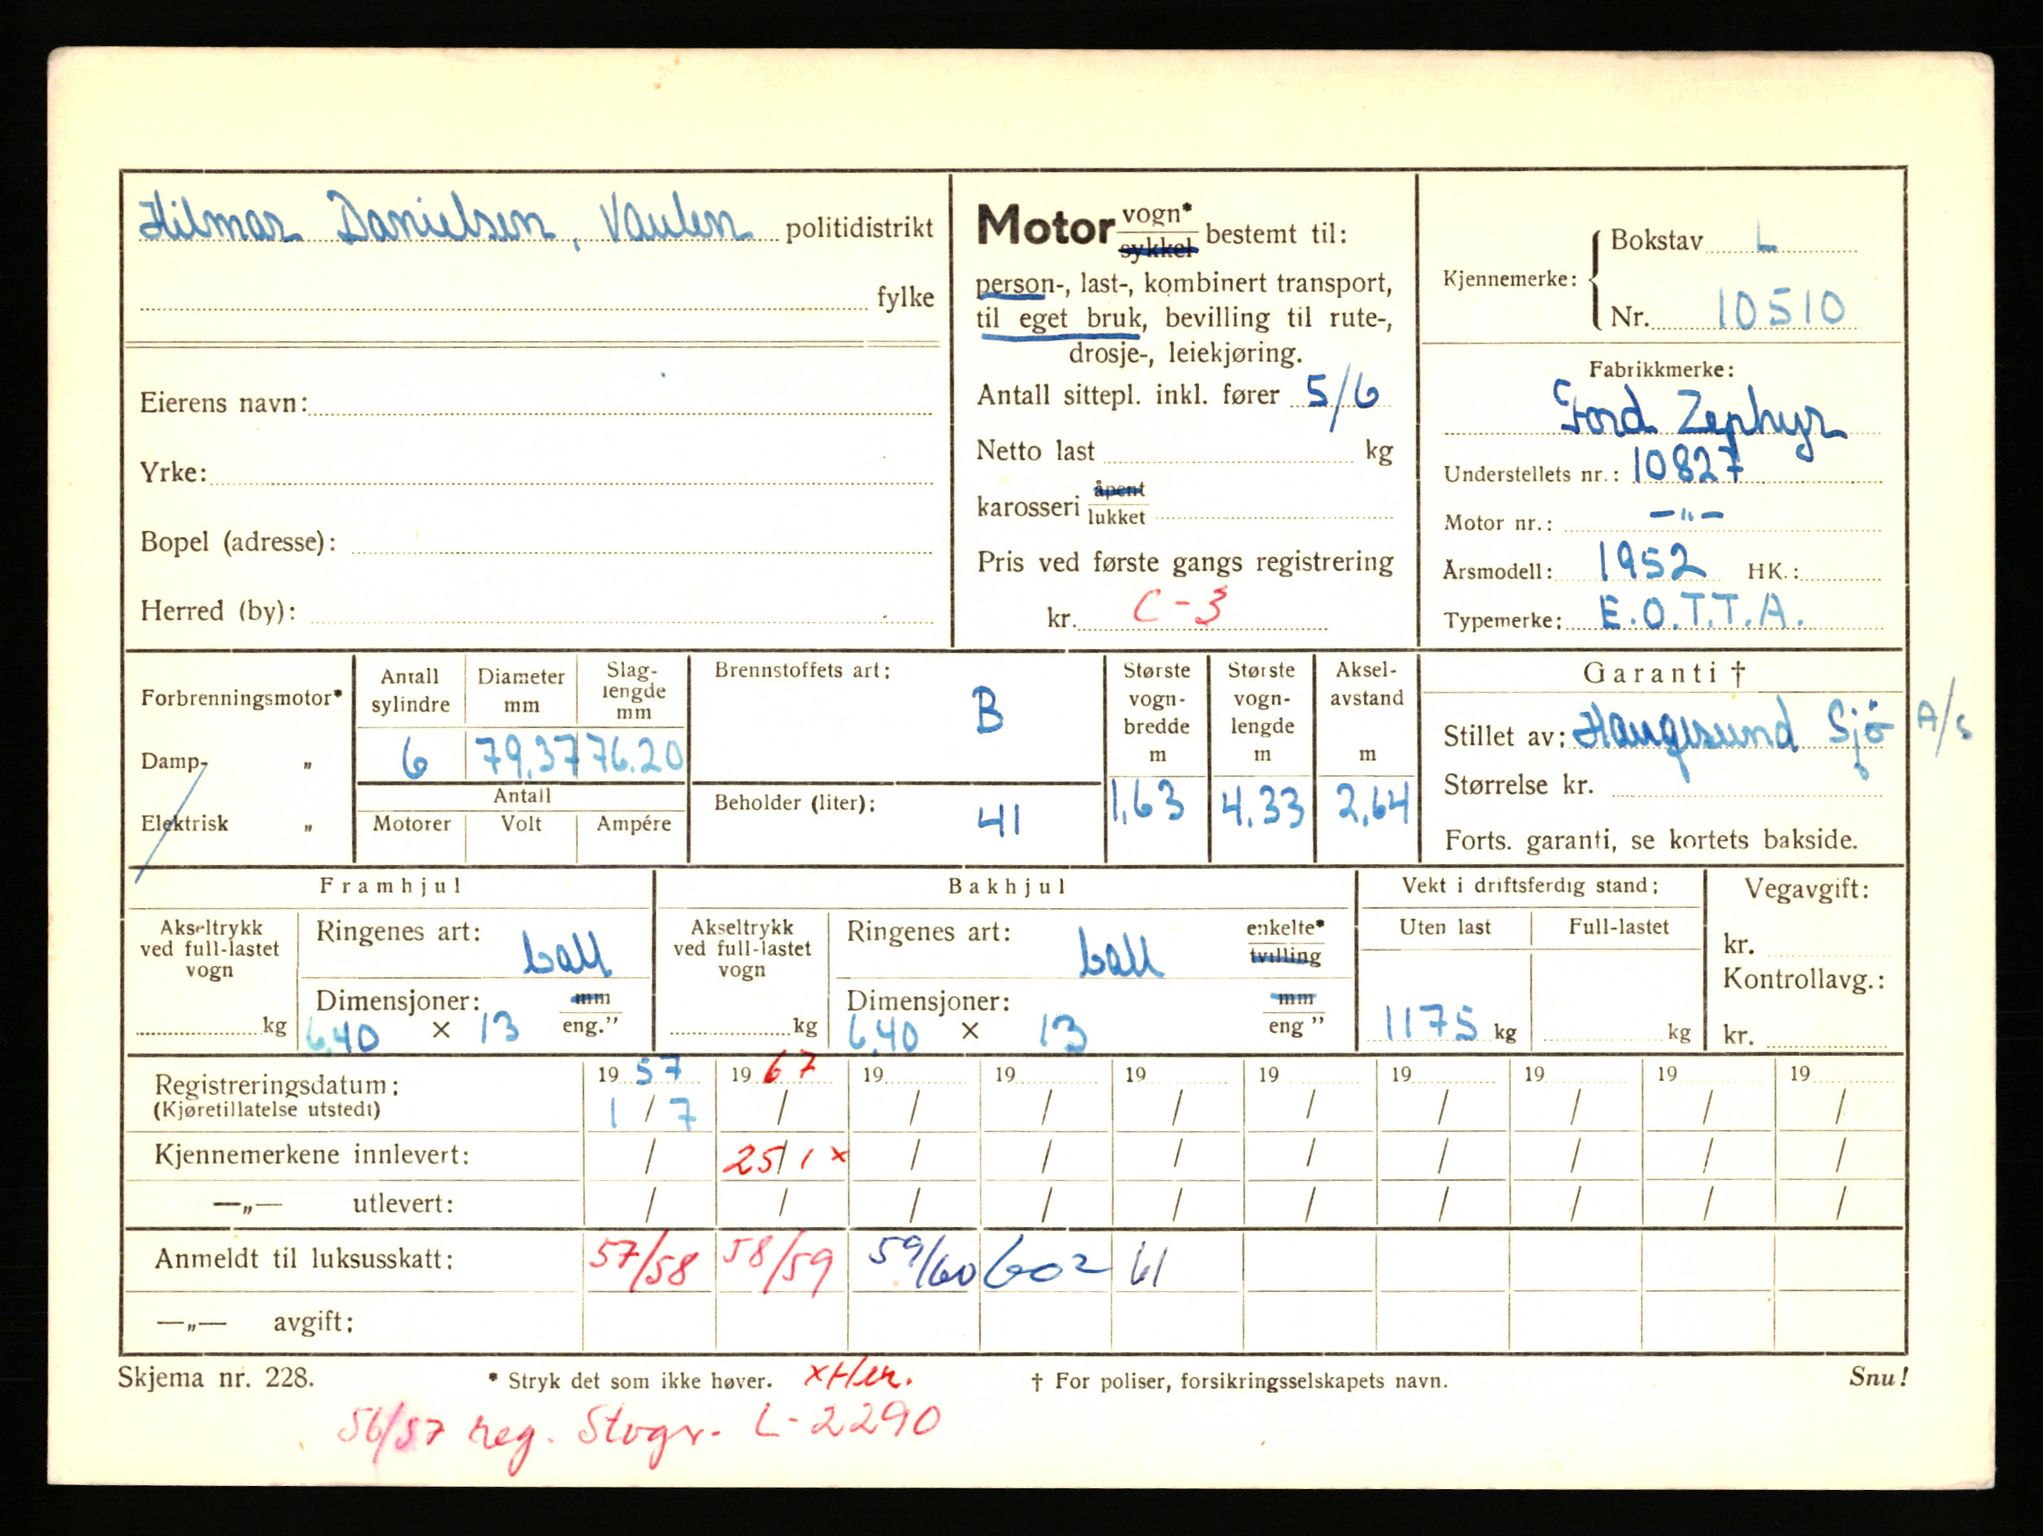 Hilmar Danielsen, Vaulen politidistrikt
fylke
Eierens navn:
Yrke:
Bopel (adresse):
Herred (by):
Motor vogn* sykkel bestemt til:
person-, last-, kombinert transport,
til eget bruk, bevilling til rute-,
drosje-, leiekjøring.
Antall sittepl. inkl. fører 5/6
Netto last kg
karosseri åpent lukket
Pris ved første gangs registrering
kr. C-3
Kjennemerke: Bokstav L
Nr. 10510
Fabrikkmerke:
Ford Zephyr
Understellets nr.: 10827
Motor nr.: -"-
Årsmodell: 1952 HK.:
Typemerke: E.O.T.T.A.
Forbrenningsmotor*
Damp- „
Elektrisk „
Antall sylindre Diameter mm Slag-lengde mm
6 79.37 76.20
Antall
Motorer Volt Ampére
Brennstoffets art: B
Beholder (liter): 41
Største vogn-bredde m Største vogn-lengde m Aksel-avstand m
1,63 4.33 2,64
Garanti †
Stillet av: Haugesund Sjö A/S
Størrelse kr.
Forts. garanti, se kortets bakside.
Framhjul
Akseltrykk ved full-lastet vogn kg
Ringenes art: ball
Dimensjoner: mm
6,40 × 13 eng."
Bakhjul
Akseltrykk ved full-lastet vogn kg
Ringenes art: ball enkelte* tvilling
Dimensjoner: mm
6,40 × 13 eng "
Vekt i driftsferdig stand:
Uten last Full-lastet
1175 kg kg
Vegavgift:
kr.
Kontrollavg.:
kr.
Registreringsdatum: 19 57 19 67 19 19 19 19 19 19 19 19
(Kjøretillatelse utstedt) 1 / 7 / / / / / / / / /
Kjennemerkene innlevert: / 25/1 x / / / / / / / /
—„— utlevert: / / / / / / / / / /
Anmeldt til luksusskatt: 57/58 58/59 59/60 602 61
—„— avgift:
Skjema nr. 228. * Stryk det som ikke høver. x Her. † For poliser, forsikringsselskapets navn. Snu!
56/57 reg. Stvgr. L-2290